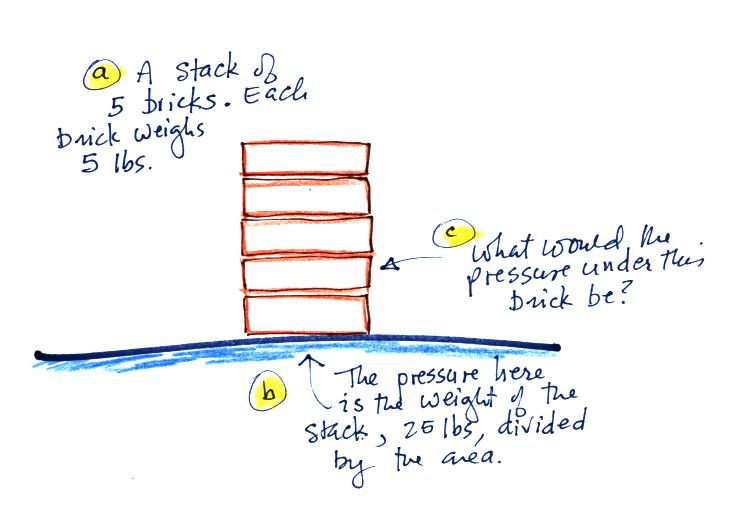 a A stack of
5 bricks. Each
brick weighs
5 lbs.
c What would the
pressure under this
brick be?
b The pressure here
is the weight of the
stack, 25 lbs, divided
by the area.